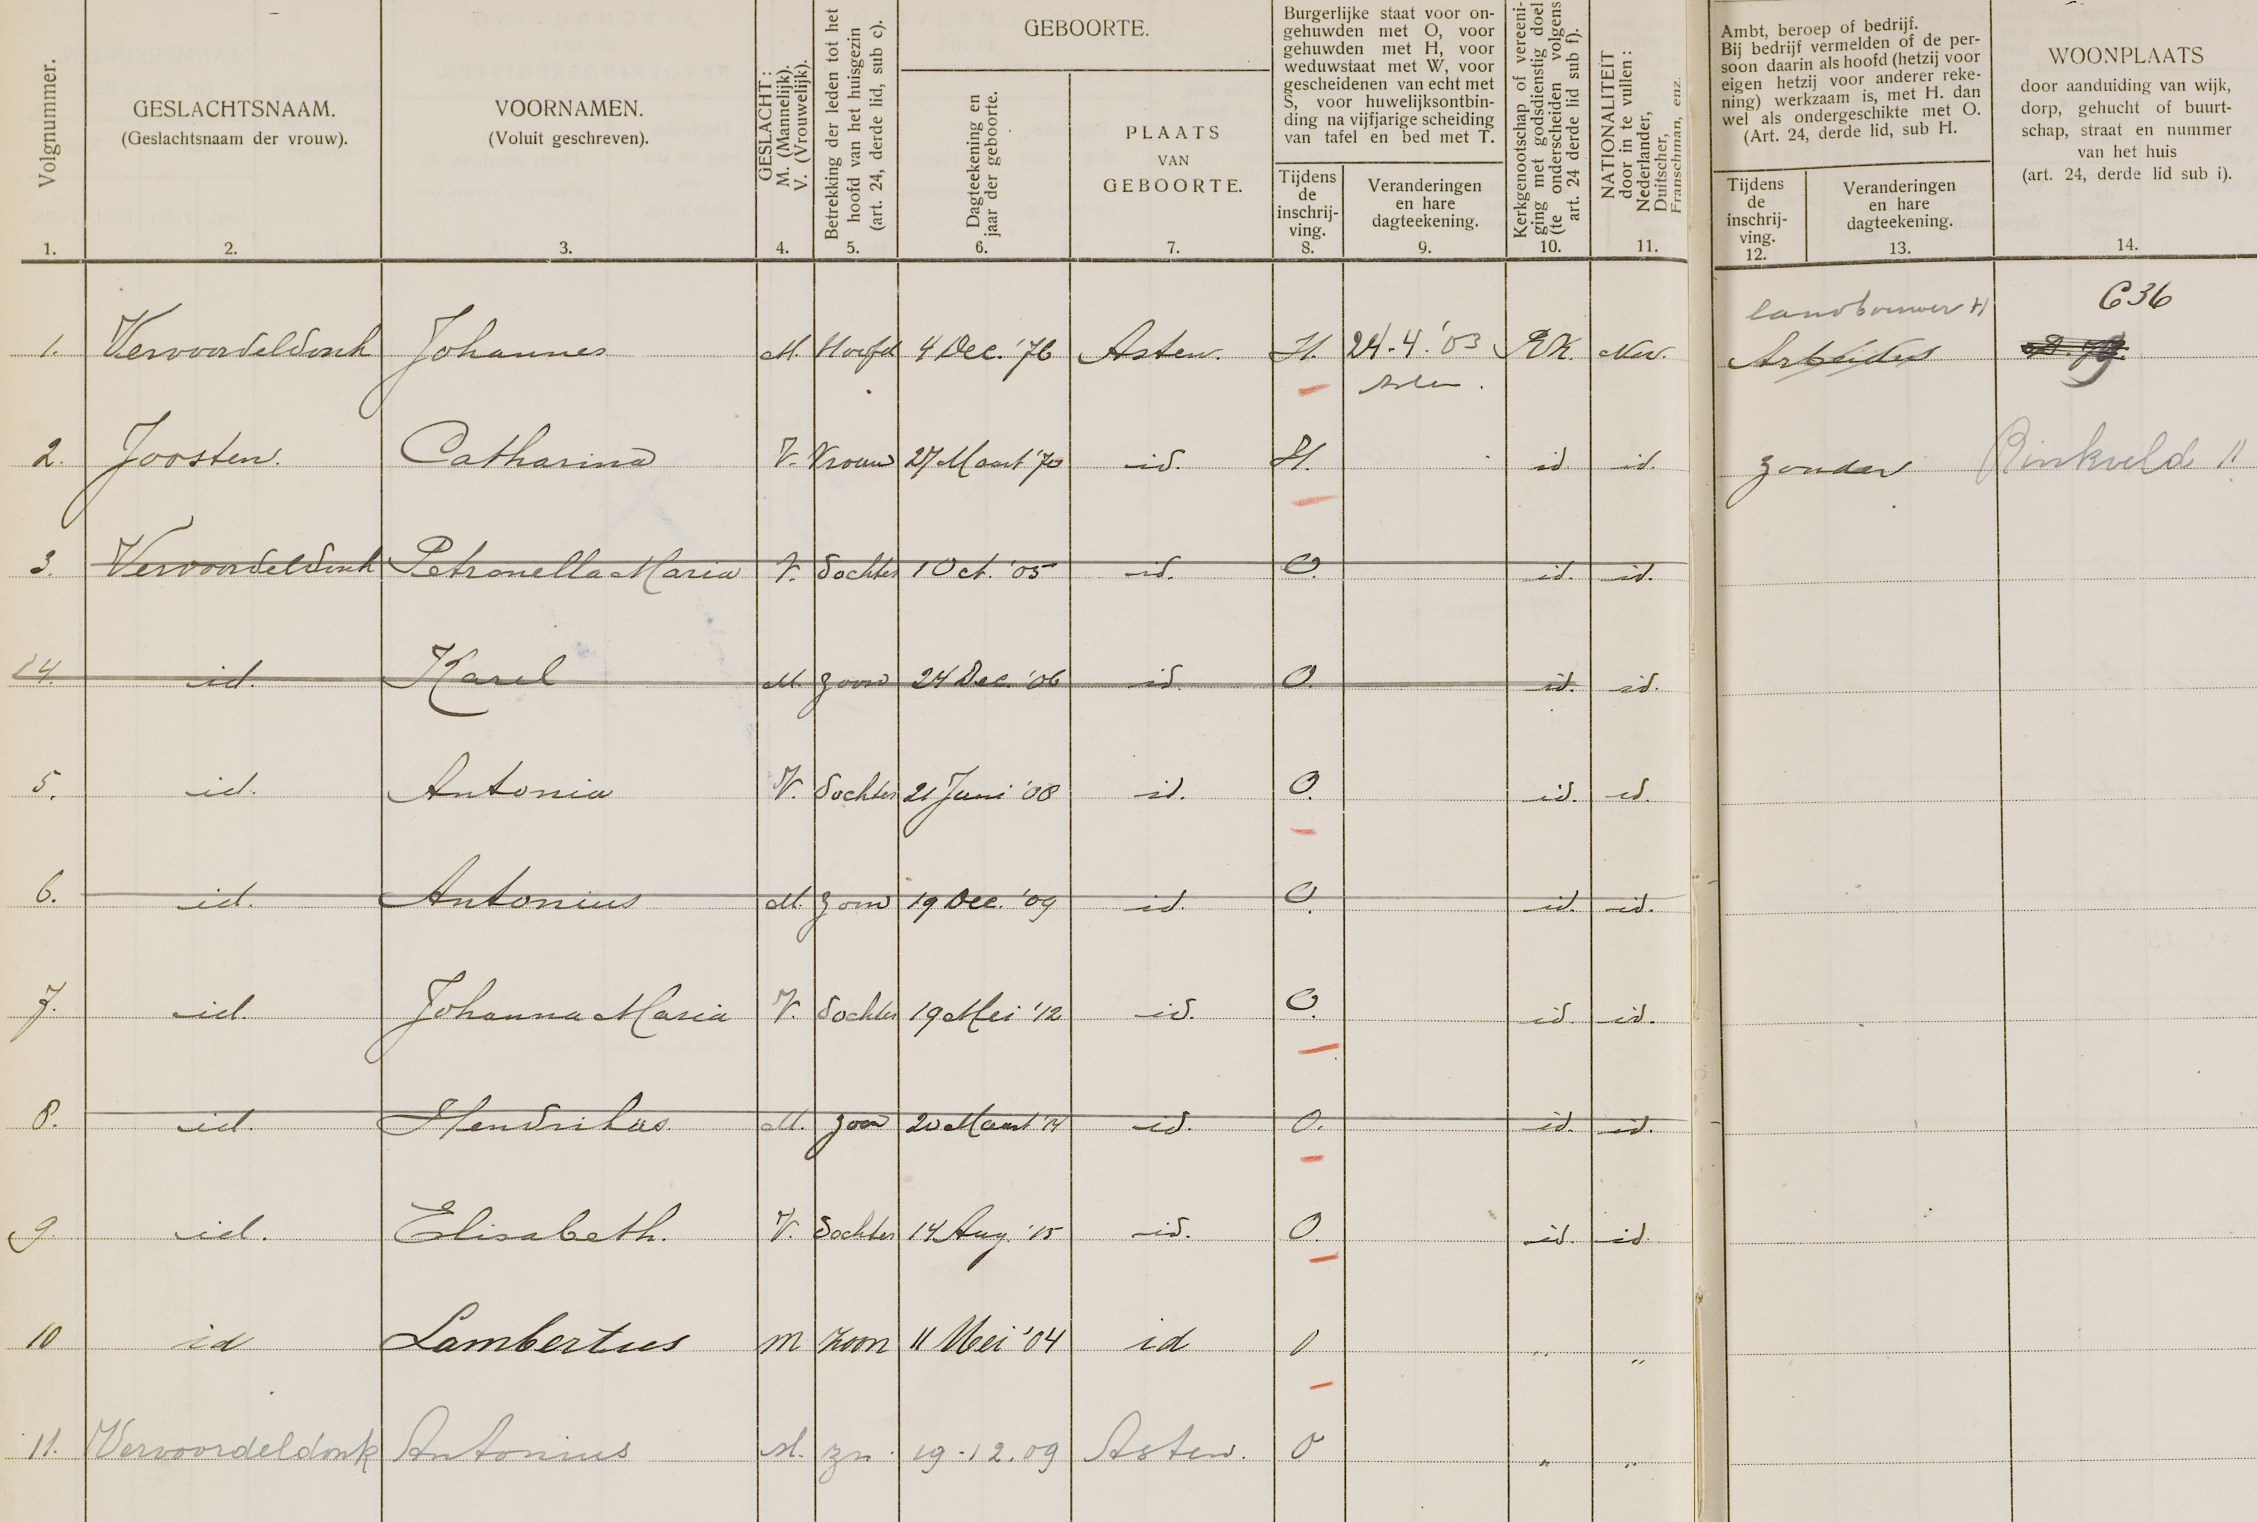 Volgnummer.
1.
GESLACHTSNAAM.
(Geslachtsnaam der vrouw).
2.
VOORNAMEN.
(Voluit geschreven).
3.
GESLACHT:
M. (Mannelijk).
V. (Vrouwelijk).
4.
Betrekking der leden tot het
hoofd van het huisgezin
(art. 24, derde lid, sub c).
5.
GEBOORTE.
Dagteekening en
jaar der geboorte.
6.
PLAATS
VAN
GEBOORTE.
7.
Burgerlijke staat voor on-
gehuwden met O, voor
gehuwden met H, voor
weduwstaat met W, voor
gescheidenen van echt met
S, voor huwelijksontbin-
ding na vijfjarige scheiding
van tafel en bed met T.
Tijdens
de
inschrij-
ving.
8.
Veranderingen
en hare
dagteekening.
9.
Kerkgenootschap of vereeni-
ging met godsdienstig doel
(te onderscheiden volgens
art. 24 derde lid sub f).
10.
NATIONALITEIT
door in te vullen:
Nederlander,
Duitscher,
Franschman, enz.
11.
Ambt, beroep of bedrijf.
Bij bedrijf vermelden of de per-
soon daarin als hoofd (hetzij voor
eigen hetzij voor anderer reke-
ning) werkzaam is, met H. dan
wel als ondergeschikte met O.
(Art. 24, derde lid, sub H.
Tijdens
de
inschrij-
ving.
12.
Veranderingen
en hare
dagteekening.
13.
WOONPLAATS
door aanduiding van wijk,
dorp, gehucht of buurt-
schap, straat en nummer
van het huis
(art. 24, derde lid sub i).
14.
landbouwer H C36
1. Vervoordeldonk Johannes M. Hoofd 4 Dec. '76 Asten. H. 24.4.'03 R.K. Ned. Arbeider
Asten.
2. Joosten. Catharina V. Vrouw 27 Maart '70 id. H. id. id. zonder Rinkveld 11
3. Vervoordeldonk Petronella Maria V. dochter 1 Oct. '05 id. O. id. id.
14. id. Karel M. zoon 24 Dec. '06 id. O. id. id.
5. id. Antonia V. dochter 21 Juni '08 id. O. id. id.
6. id. Antonius M. zoon 19 Dec. '09 id. O. id. id.
7. id. Johanna Maria V. dochter 19 Mei '12 id. O. id. id.
8. id. Hendrikus M. zoon 20 Maart '14 id. O. id. id.
9. id. Elisabeth. V. dochter 14 Aug. '15 id. O. id. id
10 id Lambertus M zoon 11 Mei '04 id O " "
11. Vervoordeldonk Antonius M. zn. 19.12.09 Asten. O " "